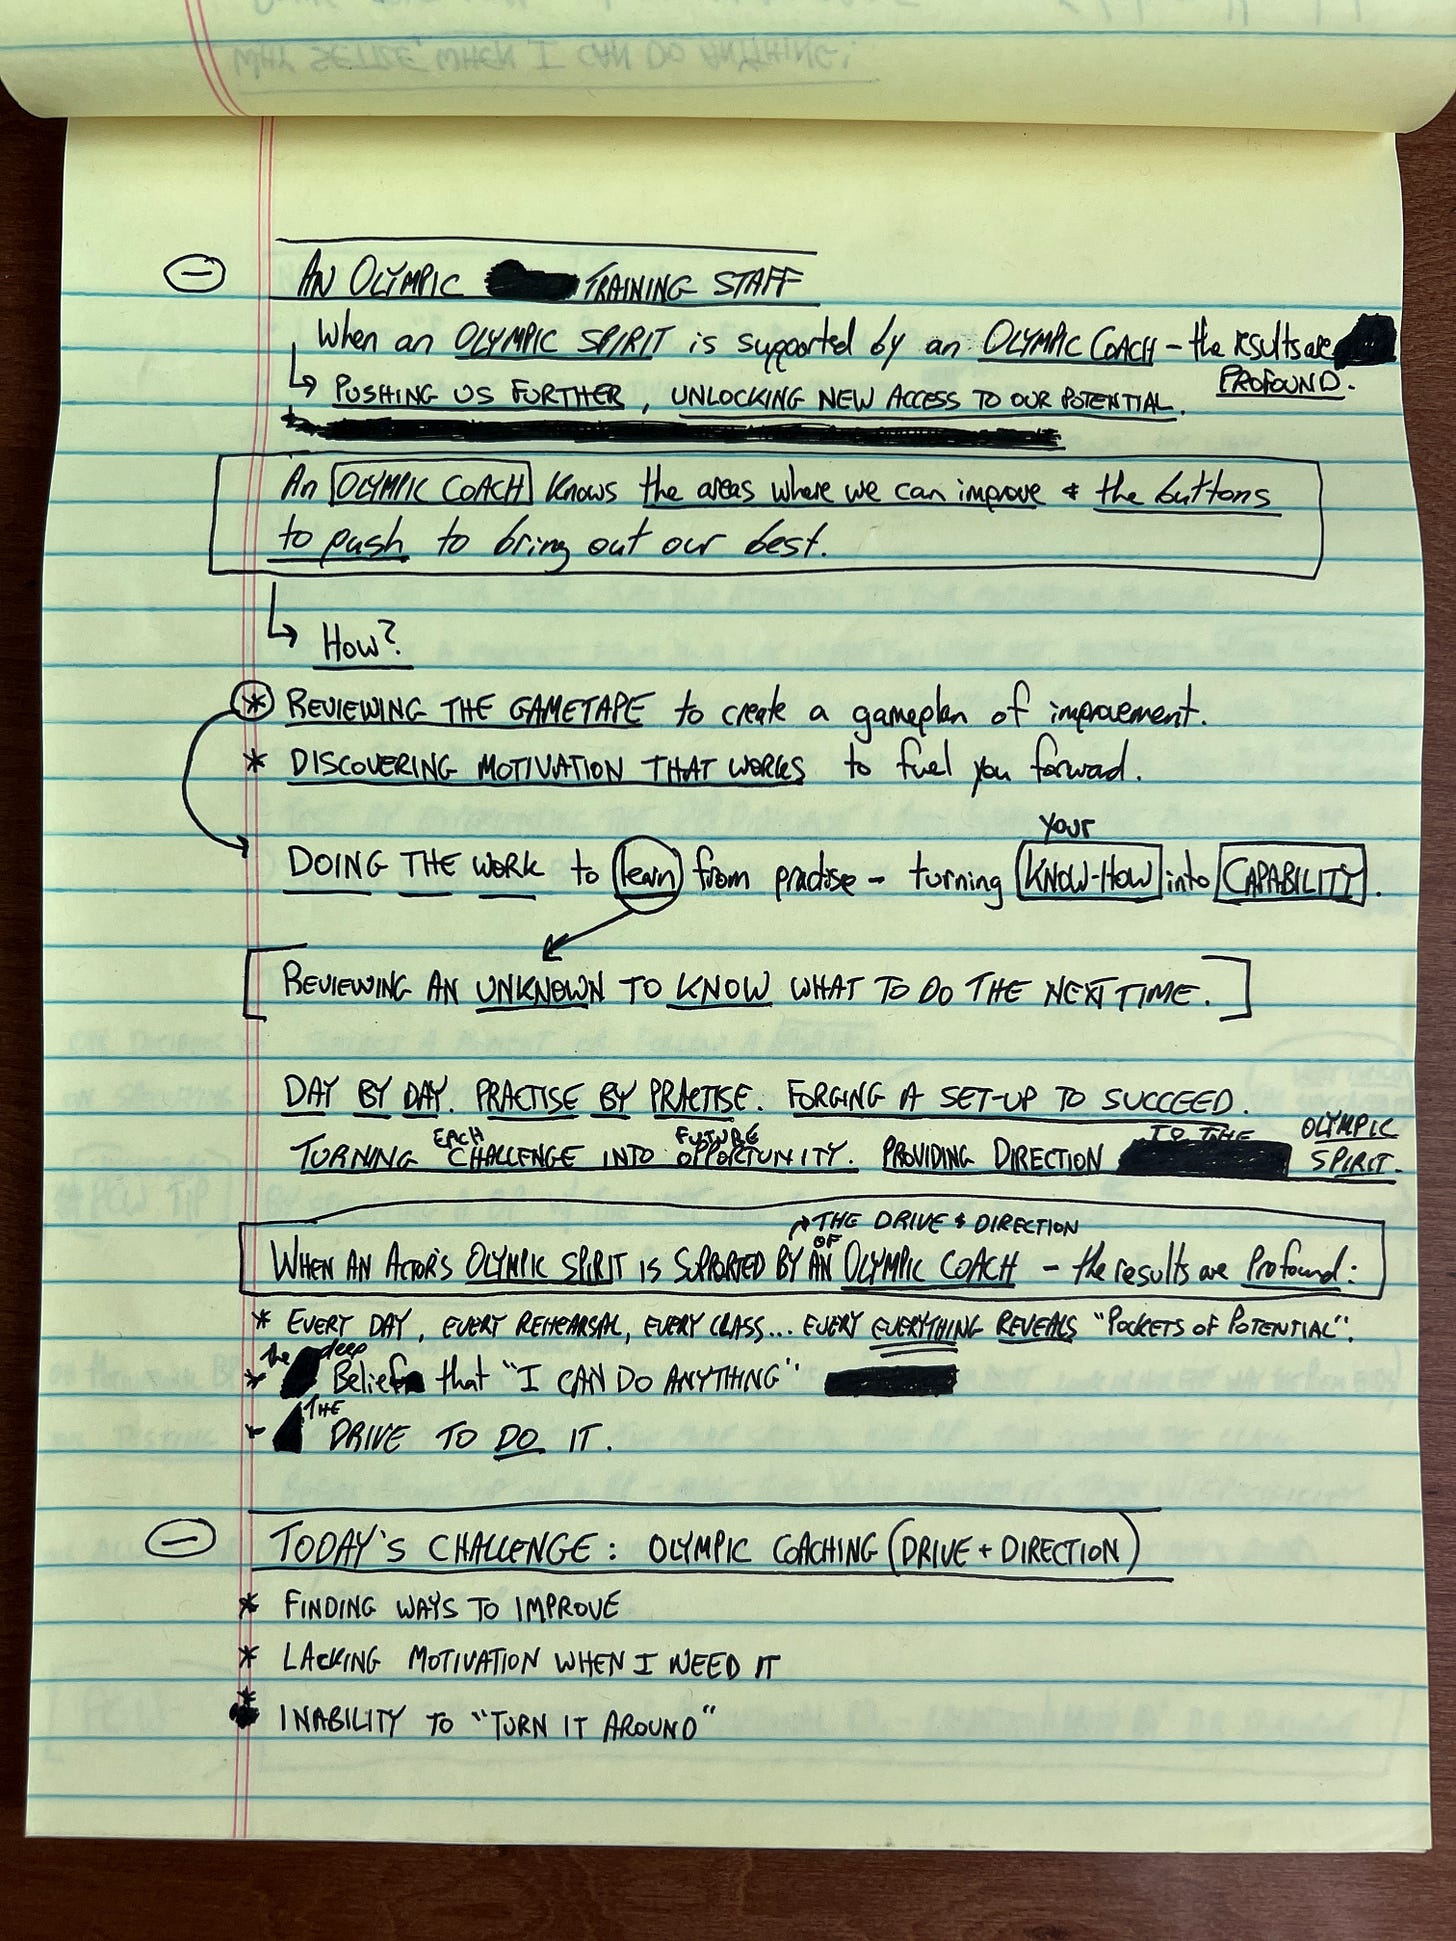 WHY SETTLE WHEN I CAN DO ANYTHING?
AN OLYMPIC TRAINING STAFF
When an OLYMPIC SPIRIT is supported by an OLYMPIC COACH - the results are
PROFOUND.
PUSHING US FURTHER, UNLOCKING NEW ACCESS TO OUR POTENTIAL.
An OLYMPIC COACH knows the areas where we can improve & the buttons
to push to bring out our best.
How?
* REVIEWING THE GAMETAPE to create a gameplan of improvement.
* DISCOVERING MOTIVATION THAT WORKS to fuel you forward.
your
DOING THE WORK to learn from practise - turning KNOW-HOW into CAPABILITY.
[REVIEWING AN UNKNOWN TO KNOW WHAT TO DO THE NEXT TIME.]
DAY BY DAY. PRACTISE BY PRACTISE. FORGING A SET-UP TO SUCCEED.
EACH FUTURE TO THE OLYMPIC
TURNING CHALLENGE INTO OPPORTUNITY. PROVIDING DIRECTION SPIRIT.
THE DRIVE & DIRECTION
OF
WHEN AN ACTOR'S OLYMPIC SPIRIT IS SUPPORTED BY AN OLYMPIC COACH - the results are Profound:
* EVERY DAY, EVERY REHEARSAL, EVERY CLASS... EVERY EVERYTHING REVEALS "POCKETS OF POTENTIAL".
the deep
* Belief that "I CAN DO ANYTHING"
THE
* DRIVE TO DO IT.
TODAY'S CHALLENGE: OLYMPIC COACHING (DRIVE + DIRECTION)
* FINDING WAYS TO IMPROVE
* LACKING MOTIVATION WHEN I NEED IT
* INABILITY TO "TURN IT AROUND"